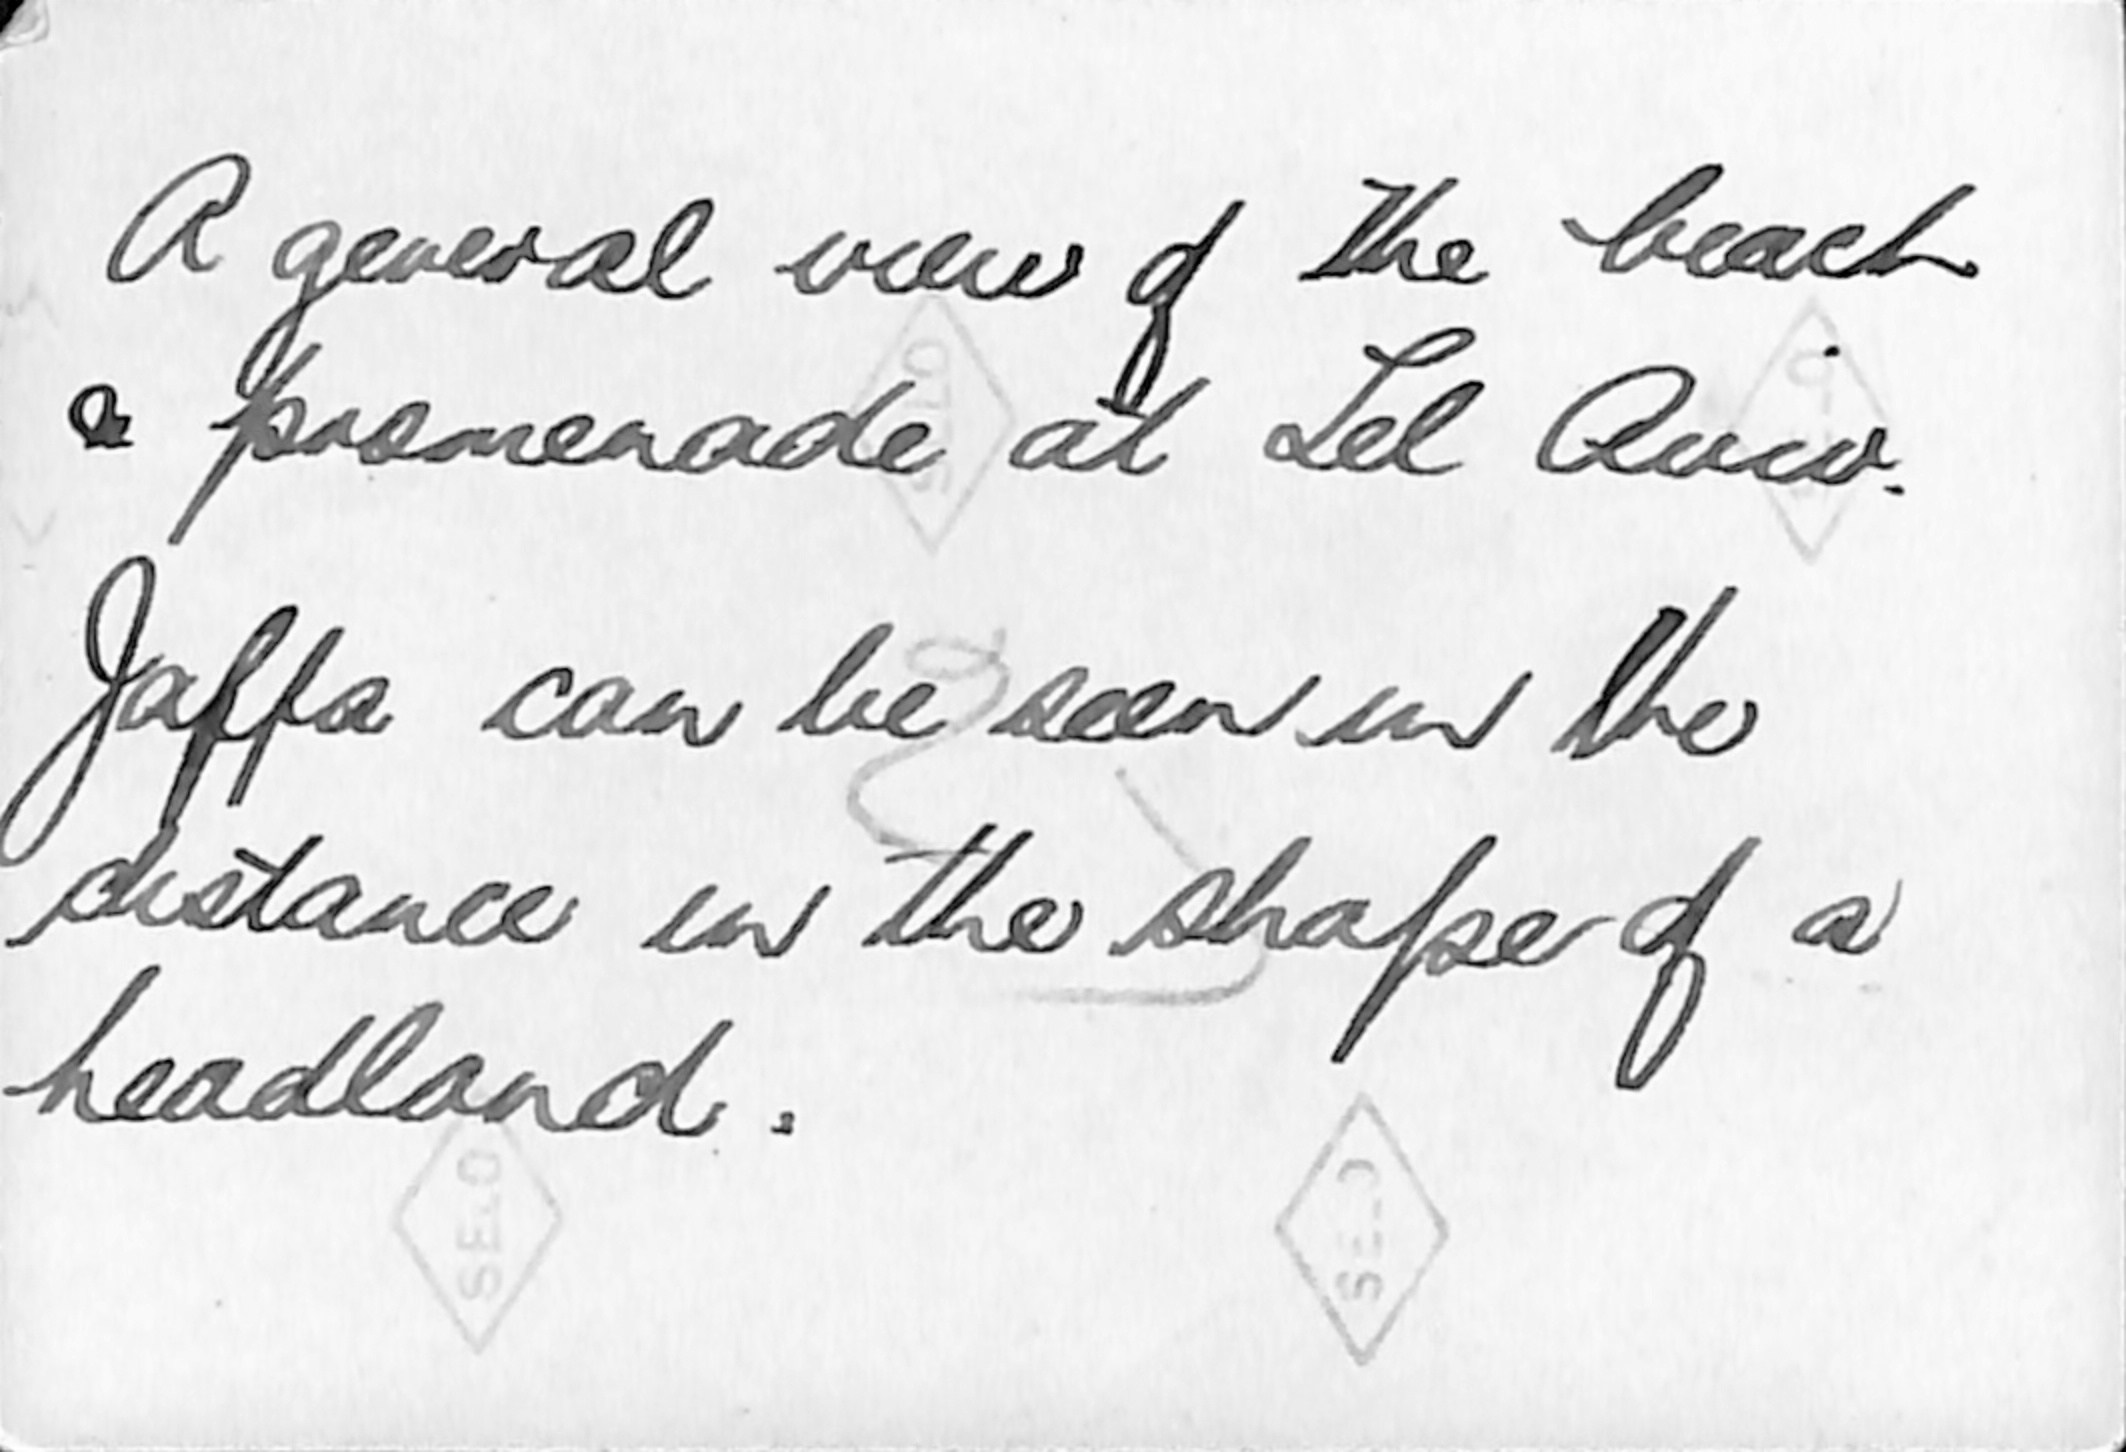 A general view of the beach
& promenade at Tel Aviv.
Jaffa can be seen in the
distance in the shape of a
headland.
SELO
SELO
SELO